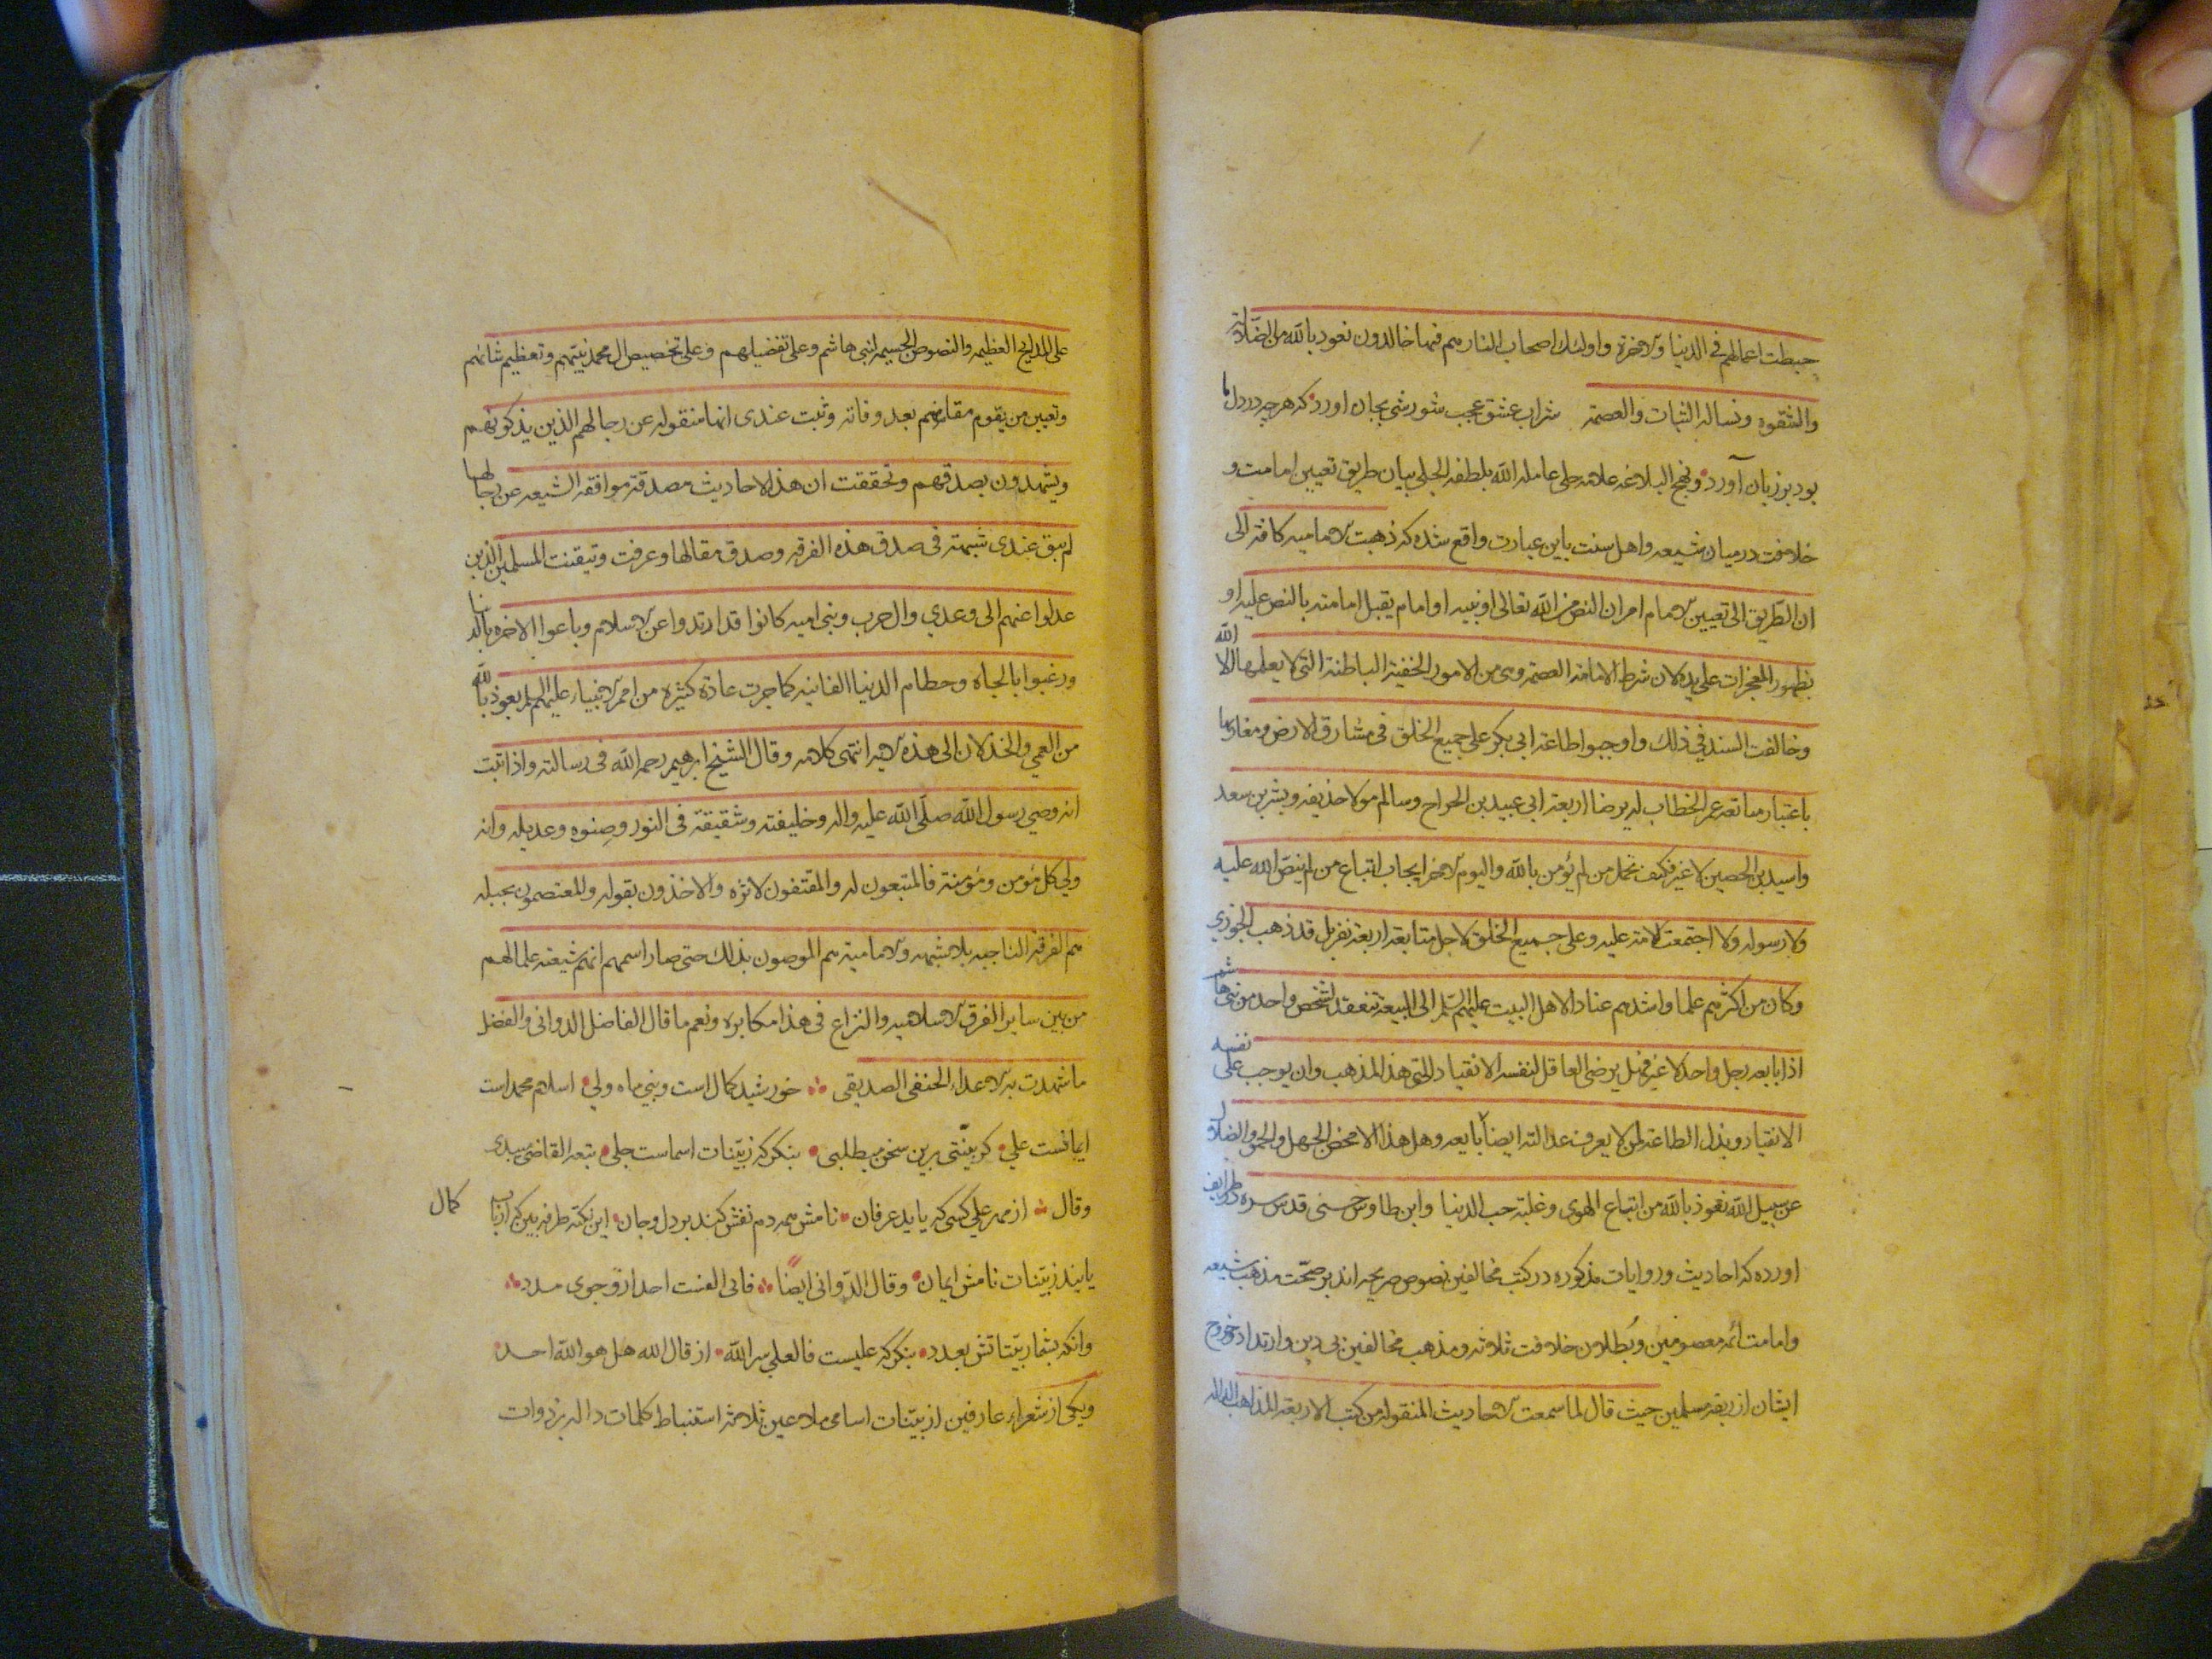 حبطت اعمالهم فی الدنیا والاخرة واولئك اصحاب النار هم فیها خالدون نعوذ بالله من الضلالة
والشقوه ونساله الثبات والعصمة شراب عشق عجب شورشی بجان اورد که هرچه در دل ما
بود بر زبان آورد ونهج البلاغه علامه حلی عامله الله بلطفه الجلی بیان طریق تعیین امامت و
خلافت در میان شیعه واهل سنت باین عبارت واقع شده که ذهبت الامامیه کافة الی
ان الطریق الی تعیین الامام امران النص من الله تعالی او نبیه او امام یقبل امامته بالنص علیه او
بظهور المعجزات علی یده لان شرط الامامة العصمة وهی من الامور الخفیة الباطنة التی لا یعلمها الا الله
وخالفت السنة فی ذلك واوجبوا اطاعة ابی بکر علی جمیع الخلق فی مشارق الارض ومغاربها
باعتبار متابعة عمر الخطاب له برضا اربعة ابی عبید بن الجراح وسالم مولا حذیفه وبشر بن سعد
واسید بن الحصین لا غیر فکیف یحل من لم یؤمن بالله والیوم الاخر ایجاب اتباع من لم ینص الله علیه
ولا رسوله ولا اجتمعت الامة علیه وعلی جمیع الخلق لاجل متابعة اربعة نفر بل قد ذهب الجوزی
وکان من اکثرهم علما واشدهم عنادا لاهل البیت علیهم السلم الی البیعة تنعقد لشخص واحد من بنی هاشم
اذا بایعه رجل واحد لا غیر فهل یرضی العاقل لنفسه الانقیاد الی هذا المذهب وان یوجب علی نفسه
الانقیاد وبذل الطاعة لمن لا یعرف عدالته ایضا بایعه وهل هذا الا محض الجهل والحمق والضلال
عن سبیل الله نعوذ بالله من اتباع الهوی وغلبة حب الدنیا وابن طاوس حسنی قدس سره در طرایف
اورده که احادیث وروایات مذکوره در کتب مخالفین نصوص صریحه اند بر صحت مذهب شیعه
وامامت ائمه معصومین وبطلان خلافت ثلاثه ومذهب مخالفین بی دین وارتداد وخروج
ایشان از ربقه مسلمین حیث قال لما سمعت الاحادیث المنقوله من کتب الاربعة المذاهب الداله
علی المدایح العظیمه والنصوص الجسیمه لبنی هاشم وعلی تفضیلهم وعلی تخصیص ال محمد نبیهم وتعظیم شانهم
وتعیین من یقوم مقامهم بعد وفاته وثبت عندی انها منقوله عن رجالهم الذین یذکونهم
ویشهدون بصدقهم وتحققت ان هذه الاحادیث مصدقة موافقه الشیعه عن رجالها
لم یبق عندی شبهة فی صدق هذه الفرقه وصدق مقالها وعرفت وتیقنت المسلمین الذین
عدلوا عنهم الی وعدی وال حرب وبنی امیه کانوا قد ارتدوا عن الاسلام وباعوا الاخره بالدنیا
ورغبوا بالجاه وحطام الدنیا الفانیه کما جرت عادة کثیره من امم الانبیاء علیهم السلم نعوذ بالله
من العمی والخذلان الی هذه انتهی کلامه وقال الشیخ ابرهیم رحمه الله فی رسالته واذا ثبت
انه وصی رسول الله صلی الله علیه واله وخلیفته وشقیقه فی النور وصنوه وعدیله وانه
ولی کل مؤمن ومؤمنة فالمتبعون له والمقتفون لاثره والاخذون بقوله والمعتصمون بحبله
هم الفرقة الناجیه بلا شبهه والامامیة هم الموصون بذلك حتی صار اسمهم انهم شیعته علما لهم
من بین سایر الفرق الاسلامیه والنزاع فی هذا مکابره ونعم ما قال الفاضل الدوانی والفضل
ما شهدت به الاعداء الحنفی الصدیقی خورشید کمال است ونبی ماه ولی اسلام محمد است
ایمانست علی کر بینتی برین سخن میطلبی بنکر که زبینات اسماست جلی تبعه القاضی میبدی
وقال از مهر علی کسی که یابد عرفان نامش همه دم نقش کند بر دل وجان این نکته طرفه بین که ارباب کمال
یابند زبینات نامش ایمان وقال الدوانی ایضا
وانکه بشمار بیناتش بعدد بنکر که علیست فالعلی سر الله از قال الله هل هو الله احد
ویکی از شعراء عارفین از بینات اسامی ملاعین ثلاثه استنباط کلمات داله بر ذوات